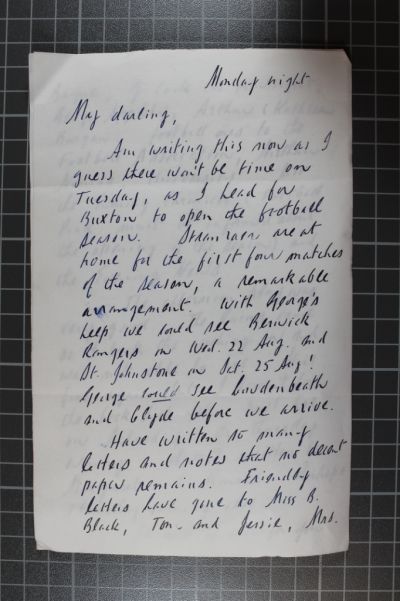 Monday night
My darling,
Am writing this now as I
guess there won't be time on
Tuesday, as I head for
Buxton to open the football
season. Stranraer are at
home for the first four matches
of the season, a remarkable
arrangement. With George's
help we could see Berwick
Rangers on Wed. 22 Aug. and
St. Johnstone on Sat. 25 Aug!
George could see Cowdenbeath
and Clyde before we arrive.
Have written so many
letters and notes that no decent
paper remains. Friendly
letters have gone to Miss B.
Black, Tom and Jessie, Mrs.